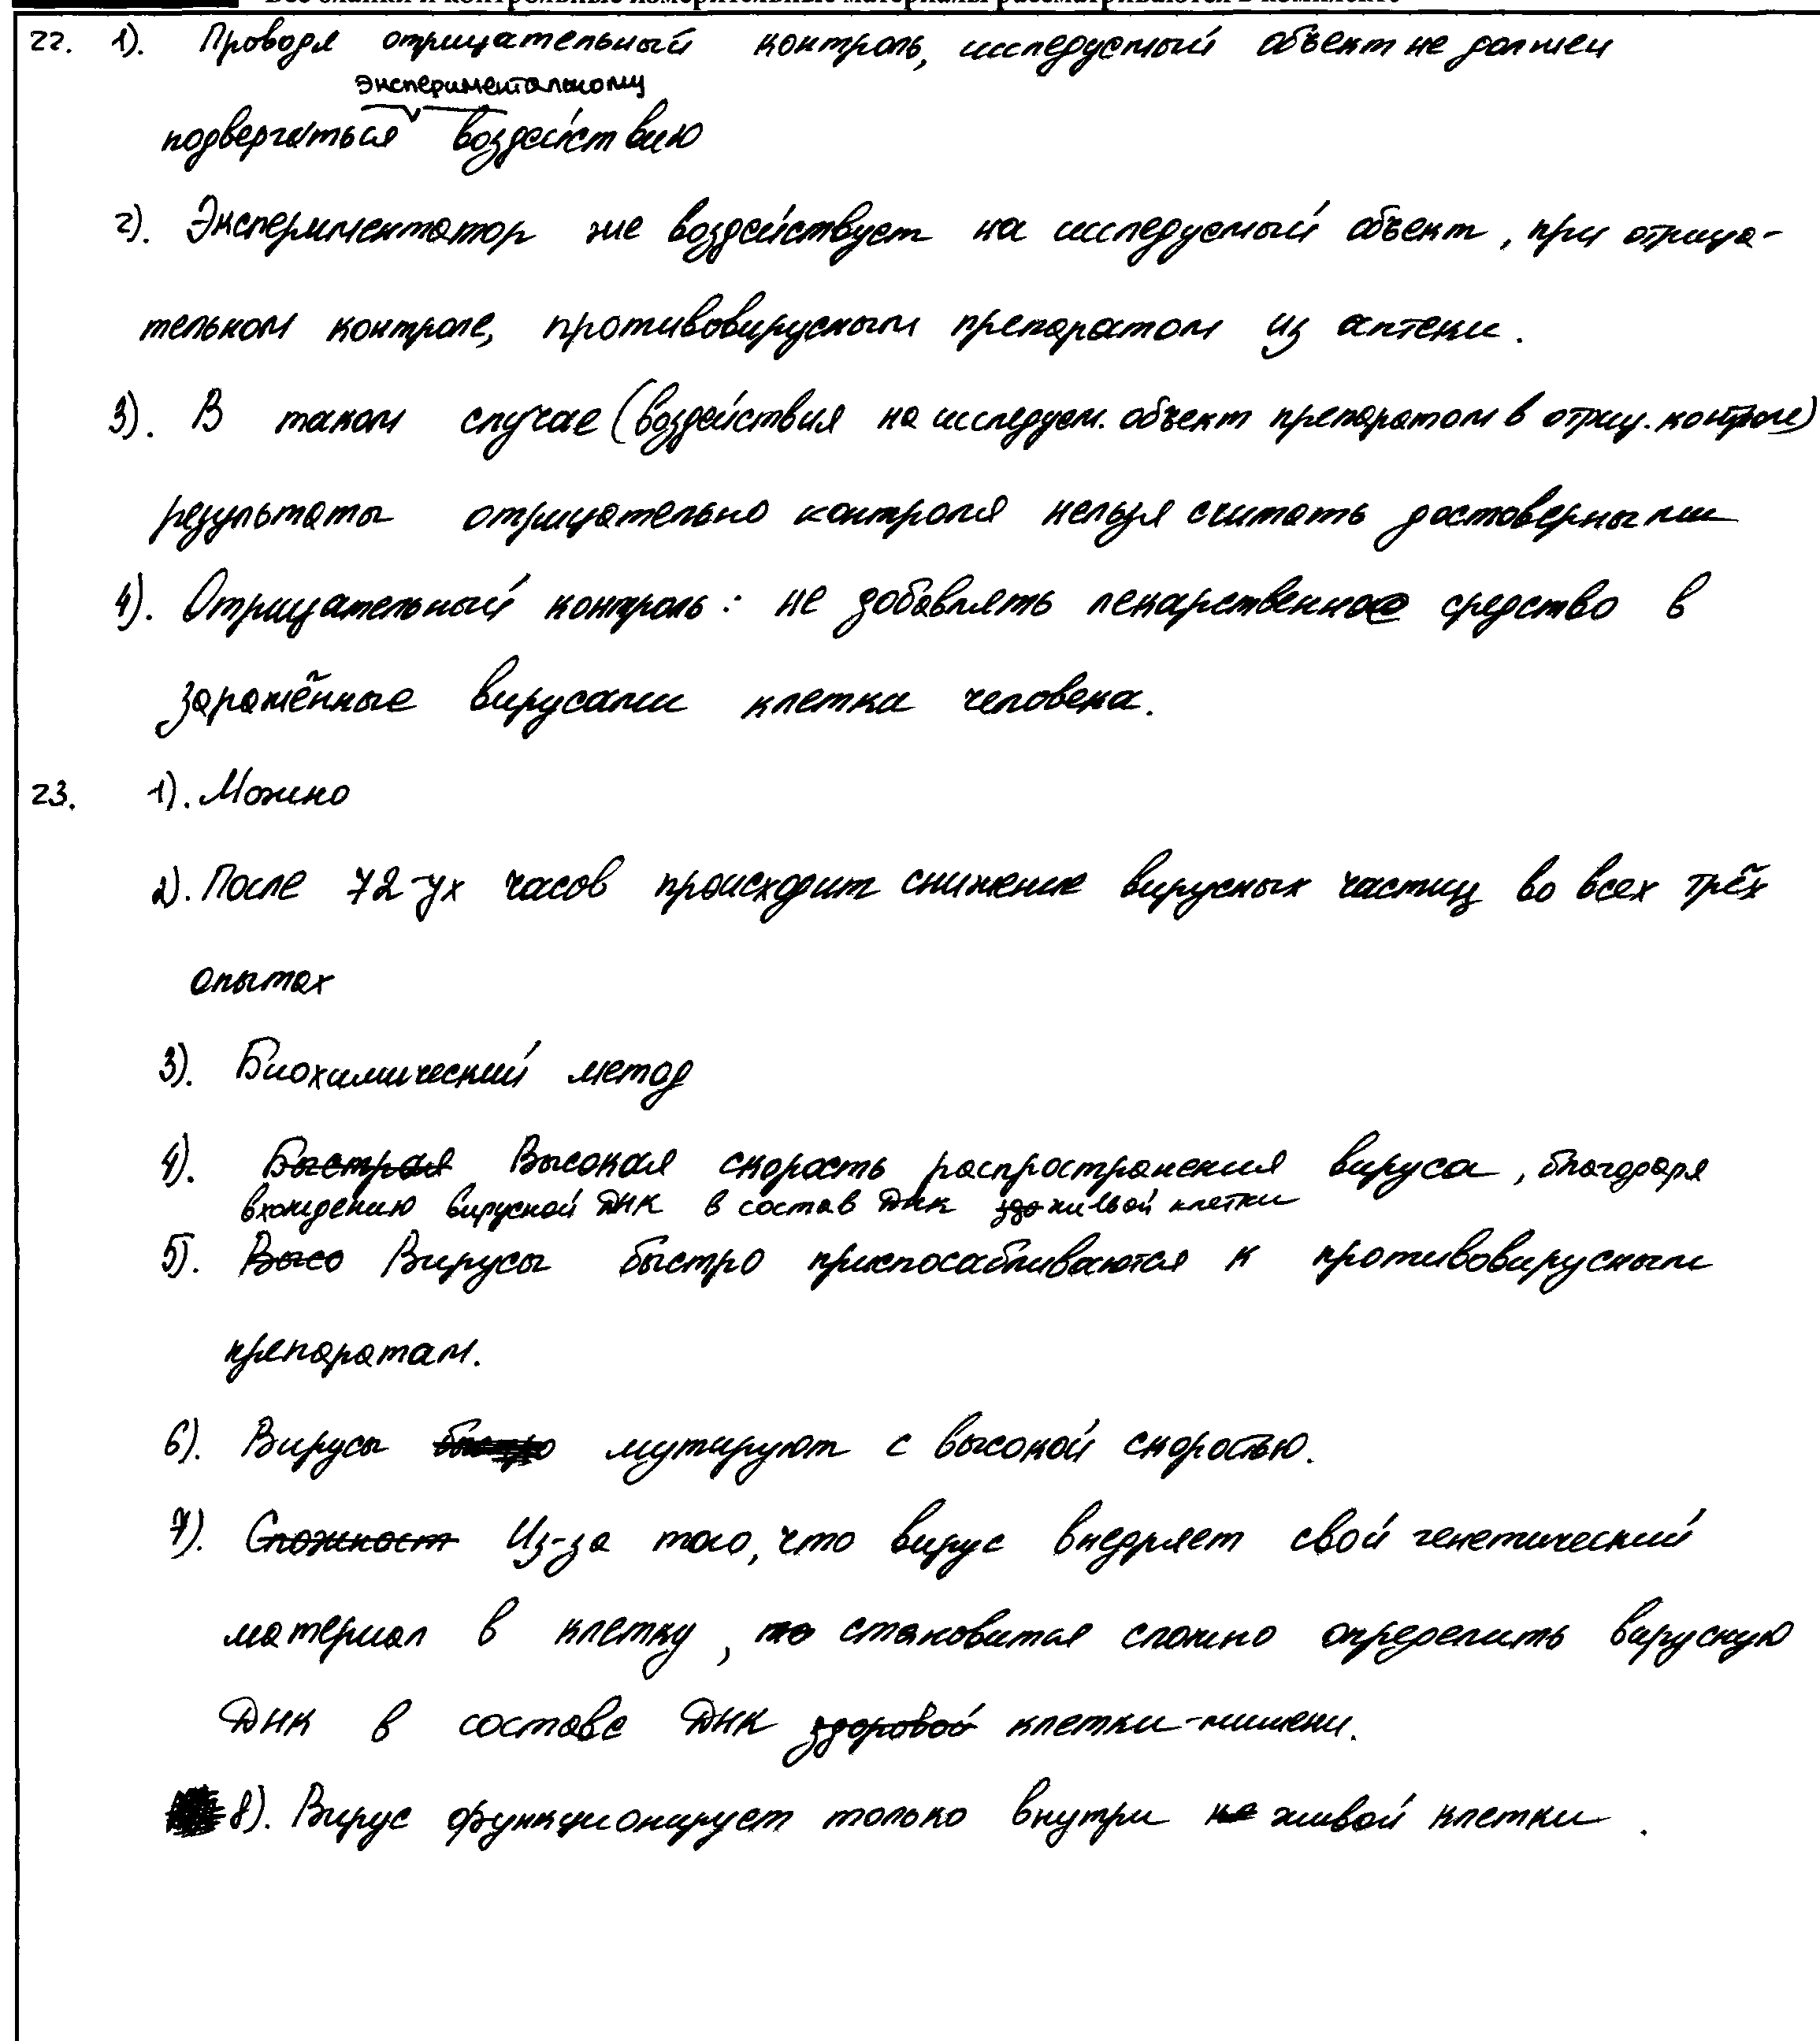 Все бланки и контрольные измерительные материалы рассматриваются в комплекте
22. 1). Проводя отрицательный контроль, исследуемый объект не должен
экспериментальному
подвергаться воздействию
2). Экспериментатор же воздействует на исследуемый объект, при отрица-
тельном контроле, противовирусным препаратом из аптеки.
3). В таком случае (воздействия на исследуем. объект препаратом в отриц. контроле)
результаты отрицательно контроля нельзя считать достоверными
4). Отрицательный контроль: не добавлять лекарственное средство в
заражённые вирусами клетка человека.
23. 1). Можно
2). После 72-ух часов происходит снижение вирусных частиц во всех трёх
опытах
3). Биохимический метод
4). Быстрая Высокая скорость распространения вируса, благодаря
вхождению вирусной ДНК в состав ДНК здо живой клетки
5). Высо Вирусы быстро приспосабливаются к противовирусным
препаратам.
6). Вирусы быстро мутируют с высокой скоростью.
7). Сложност Из-за того, что вирус внедряет свой генетический
материал в клетку, то становится сложно определить вирусную
ДНК в составе ДНК здоровой клетки-мишени.
8). Вирус функционирует только внутри не живой клетки.